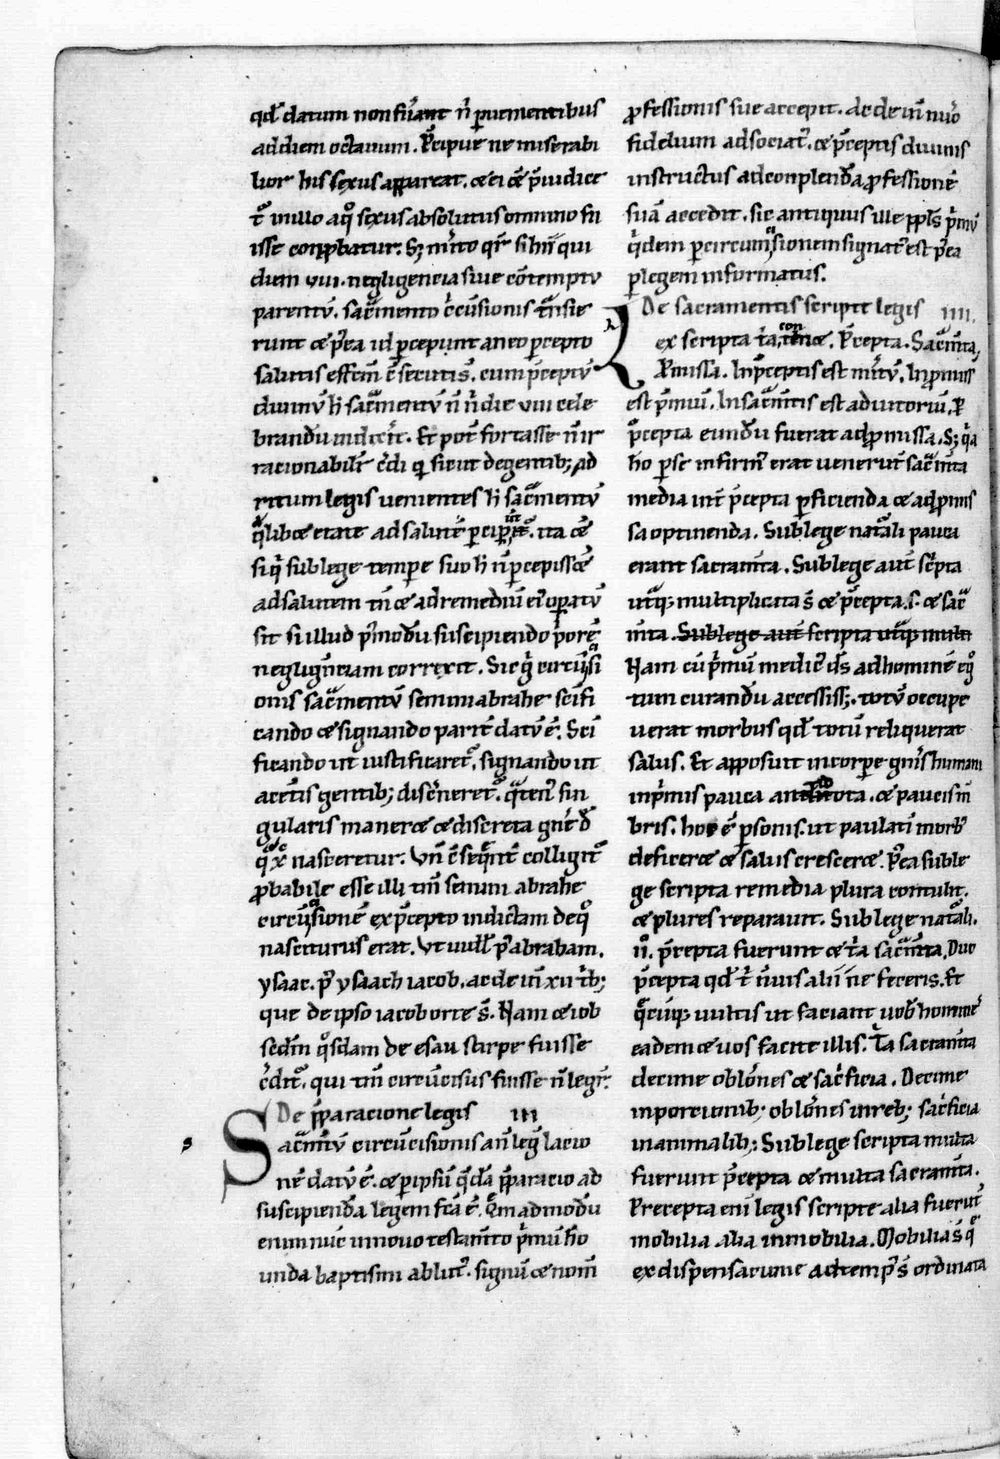 qd̄ datum non fuerant n̄ pueri mentibus
ad diem octauum. P̄cipue ne miserabi
lior his sexus appareat. ce ei cē p̄iudice
t᷑ in illo a qͦ sexus absolutus omnino fu
isse comp̱batur. Sꝫ m̄ito qr̄ si hīī qui
diem viii. negligencia siue cōtemptv
parentv̄. sac̄mento c̄cūsionis
runt ce p̄ea id p̱cepunt an eo p̱cepto
salutis effc̄m cōsecuti s̄. cum p̄ceptv̄
diuinv̄ h̄ sac̄mentv̄ n̄ n̄ die viii cele
brandū indixerit. Et pot̄ fortasse n̄ ir
racionabilit᷑ c̄di q̱ sicut de gentibꝫ ad
ritum legis venientes h̄ sac̄mentv̄
q̄libce etate ad salutē p̱cip̱e ita cē
siq̇ sub lege tempore suo h̄ n̄ p̱cepissce
ad salutem tn̄ ce ad remediū ei᷒ op̱atv̄
sit si illud p᷒modū suscipiendo p᷒orē
neglign̄ciam correxit. Sic g᷒ circūcisi
onis sac̄mentv̄ semini abrahe sc̄ifi
cando ce signando parit᷑ datv̄ ē. Sc̄i
ficando ut iustificaret᷑, signando ut
a cet̄is gentibꝫ disc̄neret᷑. q̄ten᷒ sin
gularis maneret ce discreta gn̄t̄ d̄
q̄ xp̄c nasceretur. Vn̄ cōseq̄nt᷑ colligit᷑
p̱babile esse illi tm̄ semini abrahe
circūcisionē ex p̄cepto indictam de qͦ
nasciturus erat. Vt uidel᷑ p᷒ abrabam.
ysaac. p᷒ ysaach iacob. ac dein̄ xii t̄bꝫ
que de ipso iacob orte s̄. Nam ce iob
sedm̄ qͦsdam de esau stirpe fuisse
c̄dit᷑. qui tm̄ circūcisus fuisse n̄ legit᷑.
De p̄paracione legis iii
Sac̄mtv̄ circūcisionis an̄ leḡ lacio
nē datv̄ ē. ce p̱ ipsū q̄dā p̄paracio ad
suscipiendā legem fc̄a ē. Qm̄ admodū
enim nūc in nouo testam̄to p̄mū hō
unda baptismi abluit᷑. signū ce nom̄
p̱fessionis sue accepit. ac dein̄ nūo
fidelium adsociat᷑. ce p̄ceptis diuinis
instructus ad conplendā p̱fessionē
suā accedit. sic antiquus ille ppl̄s p̄mv̄
q̇dem p̱ circumcisionem signat᷒ est p᷒ea
p̱ legem informatus.
De sacramentis scripte legis iiii.
Lex scripta t̄a continet. P̄cepta. Sac̄mta,
P̱missa. In p̄ceptis est m̄itv̄. In p̱miss
est p̄miū. In sac̄mtis est adiutoriū. P
p̄cepta eundū fuerat ad p̱missa. Sꝫ q̇a
hō p̱ se infirm᷒ erat venerūt sac̄mta
media int᷑ p̄cepta p̱ficienda ce ad p̱mis
sa optinenda. Sub lege nat᷑ali pauca
erant sacram̄ta. Sub lege aut̄ sc̄pta
utq̱ꝫ multiplicata s̄ ce p̄cepta. s. ce sac̄
m̄ta. Sub lege aut̄ scripta utq̱ꝫ multi
Nam cū p̄mū medic᷒ d̄s ad hominē eg᷒
tum curandū accessissꝫ. totv̄ occupe
verat morbus qd̄ totū reliquerat
salus. Et apposuit in corpore gn̄is humani
inp᷒mis pauca antidota. ce paucis m̄
bris. hoc ē p̱sonis. ut paulati morb᷒
deficerce ce salus crescerce. P᷒ea sub le
ge scripta remedia plura contulit.
ce plures reparauit. Sub lege nat᷑ali.
n̄. p̄cepta fuerunt ce t̄a sac̄mta. Duo
p̄cepta qd̄ t̄ n̄ uis alii ne feceris. Et
q̄cūqꝫ vultis ut faciant uob̄ hominē
eadem ce vos facite illis. T̄a sacram̄ta
decime obl̄ones ce sac̄ficia. Decime
in porcionibꝫ obl̄ones in rebꝫ sac̄ficia
in animalibꝫ. Sub lege scripta multa
fuerunt p̄cepta ce multa sacram̄ta.
Precepta eni legis scripte alia fuerūt
mobilia alia inmobilia. Mobilia s̄ q̄
ex dispensacione ad temp᷒ s̄ ordinata